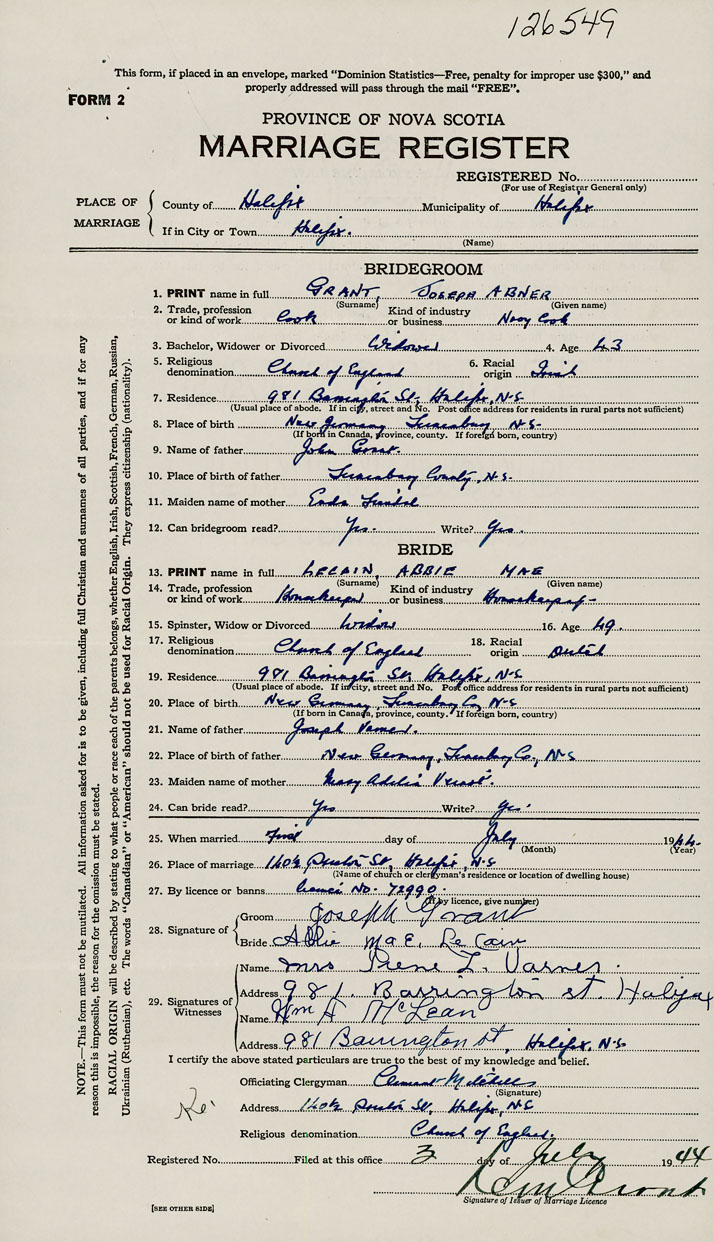 126549
This form, if placed in an envelope, marked "Dominion Statistics—Free, penalty for improper use $300," and
properly addressed will pass through the mail "FREE".
FORM 2
PROVINCE OF NOVA SCOTIA
MARRIAGE REGISTER
REGISTERED No.
(For use of Registrar General only)
PLACE OF MARRIAGE
County of Halifax Municipality of Halifax
If in City or Town Halifax.
(Name)
BRIDEGROOM
1. PRINT name in full GRANT, JOSEPH ABNER
(Surname) (Given name)
2. Trade, profession or kind of work Cook Kind of industry or business Navy Cook
3. Bachelor, Widower or Divorced Widower 4. Age 43
5. Religious denomination Church of England 6. Racial origin Irish
7. Residence 981 Barrington St, Halifax, N.S
(Usual place of abode. If in city, street and No. Post office address for residents in rural parts not sufficient)
8. Place of birth New Germany Lunenburg N.S-
(If born in Canada, province, county. If foreign born, country)
9. Name of father John Grant.
10. Place of birth of father Lunenburg County, N.S.
11. Maiden name of mother
12. Can bridegroom read? Yes. Write? Yes.
BRIDE
13. PRINT name in full LECAIN, ABBIE MAE
(Surname) (Given name)
14. Trade, profession or kind of work Housekeeper Kind of industry or business Housekeeping-
15. Spinster, Widow or Divorced Widow 16. Age 49.
17. Religious denomination Church of England 18. Racial origin Dutch
19. Residence 981 Barrington St, Halifax, N.S
(Usual place of abode. If in city, street and No. Post office address for residents in rural parts not sufficient)
20. Place of birth New Germany, Lunenburg Co, N.S
(If born in Canada, province, county. If foreign born, country)
21. Name of father Joseph
22. Place of birth of father New Germany, Lunenburg Co, N-S
23. Maiden name of mother Mary Adelia
24. Can bride read? Yes Write? Yes.
25. When married First day of July 1944.
(Month) (Year)
26. Place of marriage St, Halifax, N.S
(Name of church or clergyman's residence or location of dwelling house)
27. By licence or banns Licence No. 72990.
(If by licence, give number)
28. Signature of
Groom Joseph Grant
Bride Abbie Mae. Le Cain
29. Signatures of Witnesses
Name Mrs Irene L. Varner.
Address 981. Barrington st. Halifax
Name Wm A McLean
Address 981 Barrington St, Halifax, N.S
I certify the above stated particulars are true to the best of my knowledge and belief.
Officiating Clergyman Clement Mitchell
(Signature)
Address St, Halifax, N.S
Religious denomination Church of England.
Registered No. Filed at this office 3 day of July 1944
Signature of Issuer of Marriage Licence
[SEE OTHER SIDE]
NOTE.—This form must not be mutilated. All information asked for is to be given, including full Christian and surnames of all parties, and if for any
reason this is impossible, the reason for the omission must be stated.
RACIAL ORIGIN will be described by stating to what people or race each of the parents belongs, whether English, Irish, Scottish, French, German, Russian,
Ukrainian (Ruthenian), etc. The words "Canadian" or "American" should not be used for Racial Origin. They express citizenship (nationality).